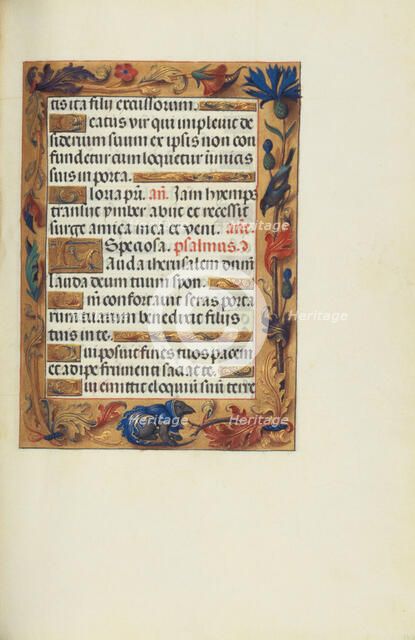 tis ita filij excussorum.
Beatus vir qui impleuit de
siderium suum ex ipsis non con
fundetur cum loquetur inimicis
suis in porta.
Gloria pri. añ. Iam hyemps
transiit ymber abiit et recessit
surge amica mea et veni. añe.
Speciosa. psalmus.
Lauda iherusalem dnm
lauda deum tuum syon.
Qm confortauit seras porta
rum tuarum benedixit filijs
tuis in te.
Qui posuit fines tuos pacem
et adipe frumenti saciat te.
Qui emittit eloquium suum terre
heritage
Images
heritage
Images
heritage
Images
heritage
Images